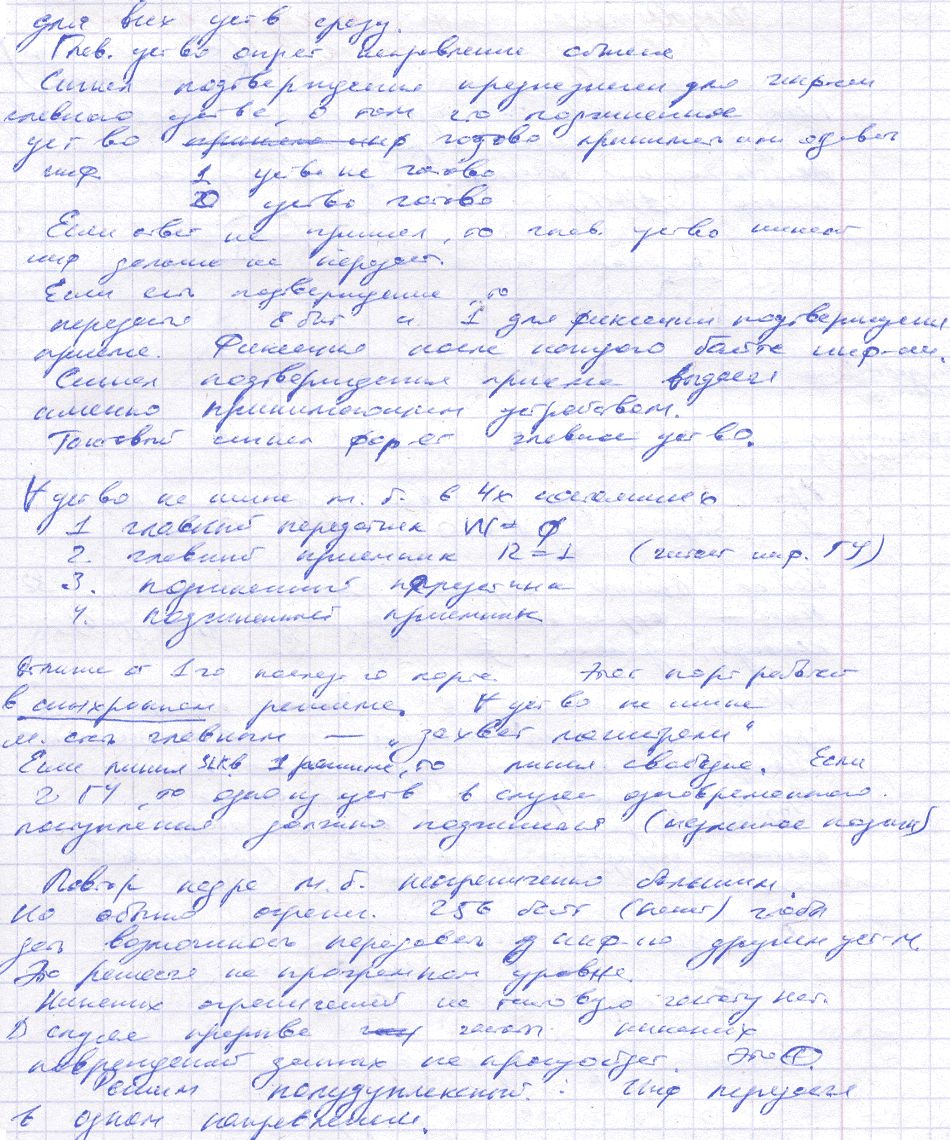 для всех уств сразу.
Глав. уство опред направление обмена
Сигнал подтверждения предназначен для информ
главного уства, о том что подчиненное
уство готово принимать или отдавать
инф 1 уство не готово
0 уство готово
Если ответ не пришел, то глав. уство никакой
инф дальше не передает.
Если есть подтверждение, то
передается 8 бит и 1 для фиксации подтверждения
приема. Фиксация после каждого байта инф-ии.
Сигнал подтверждения приема выдается
именно принимающим устройством.
Тактовый сигнал фор-ет главное уство.
∀ уство на шине м. б. в 4х состояниях
1 главный передатчик W = 0
2. главный приемник R = 1 (читает инф. ГУ)
3. подчиненный передатчик
4. подчиненный приемник
Отличие от 1го послед го порта. Этот порт работает
в синхронном режиме. ∀ уство на шине
м. стать главным — „захват магистрали“
Если линия SLK в 1 режиме, то линия свободна. Если
2 ГУ, то одно из уств в случае одновременного
поступления должно подчиниться
Повтор кадра м. б. неограниченно большим.
Но обычно огранич. 256 байт (пакет) чтобы
дать возможность передавать инф-ию другим уст-м.
Это решается на программном уровне.
Никаких ограничений на тактовую частоту нет.
В случае прерыва частоты никаких
повреждений данных не произойдет. Это (+).
Режим полудуплексный: Инф передается
в одном направлении.